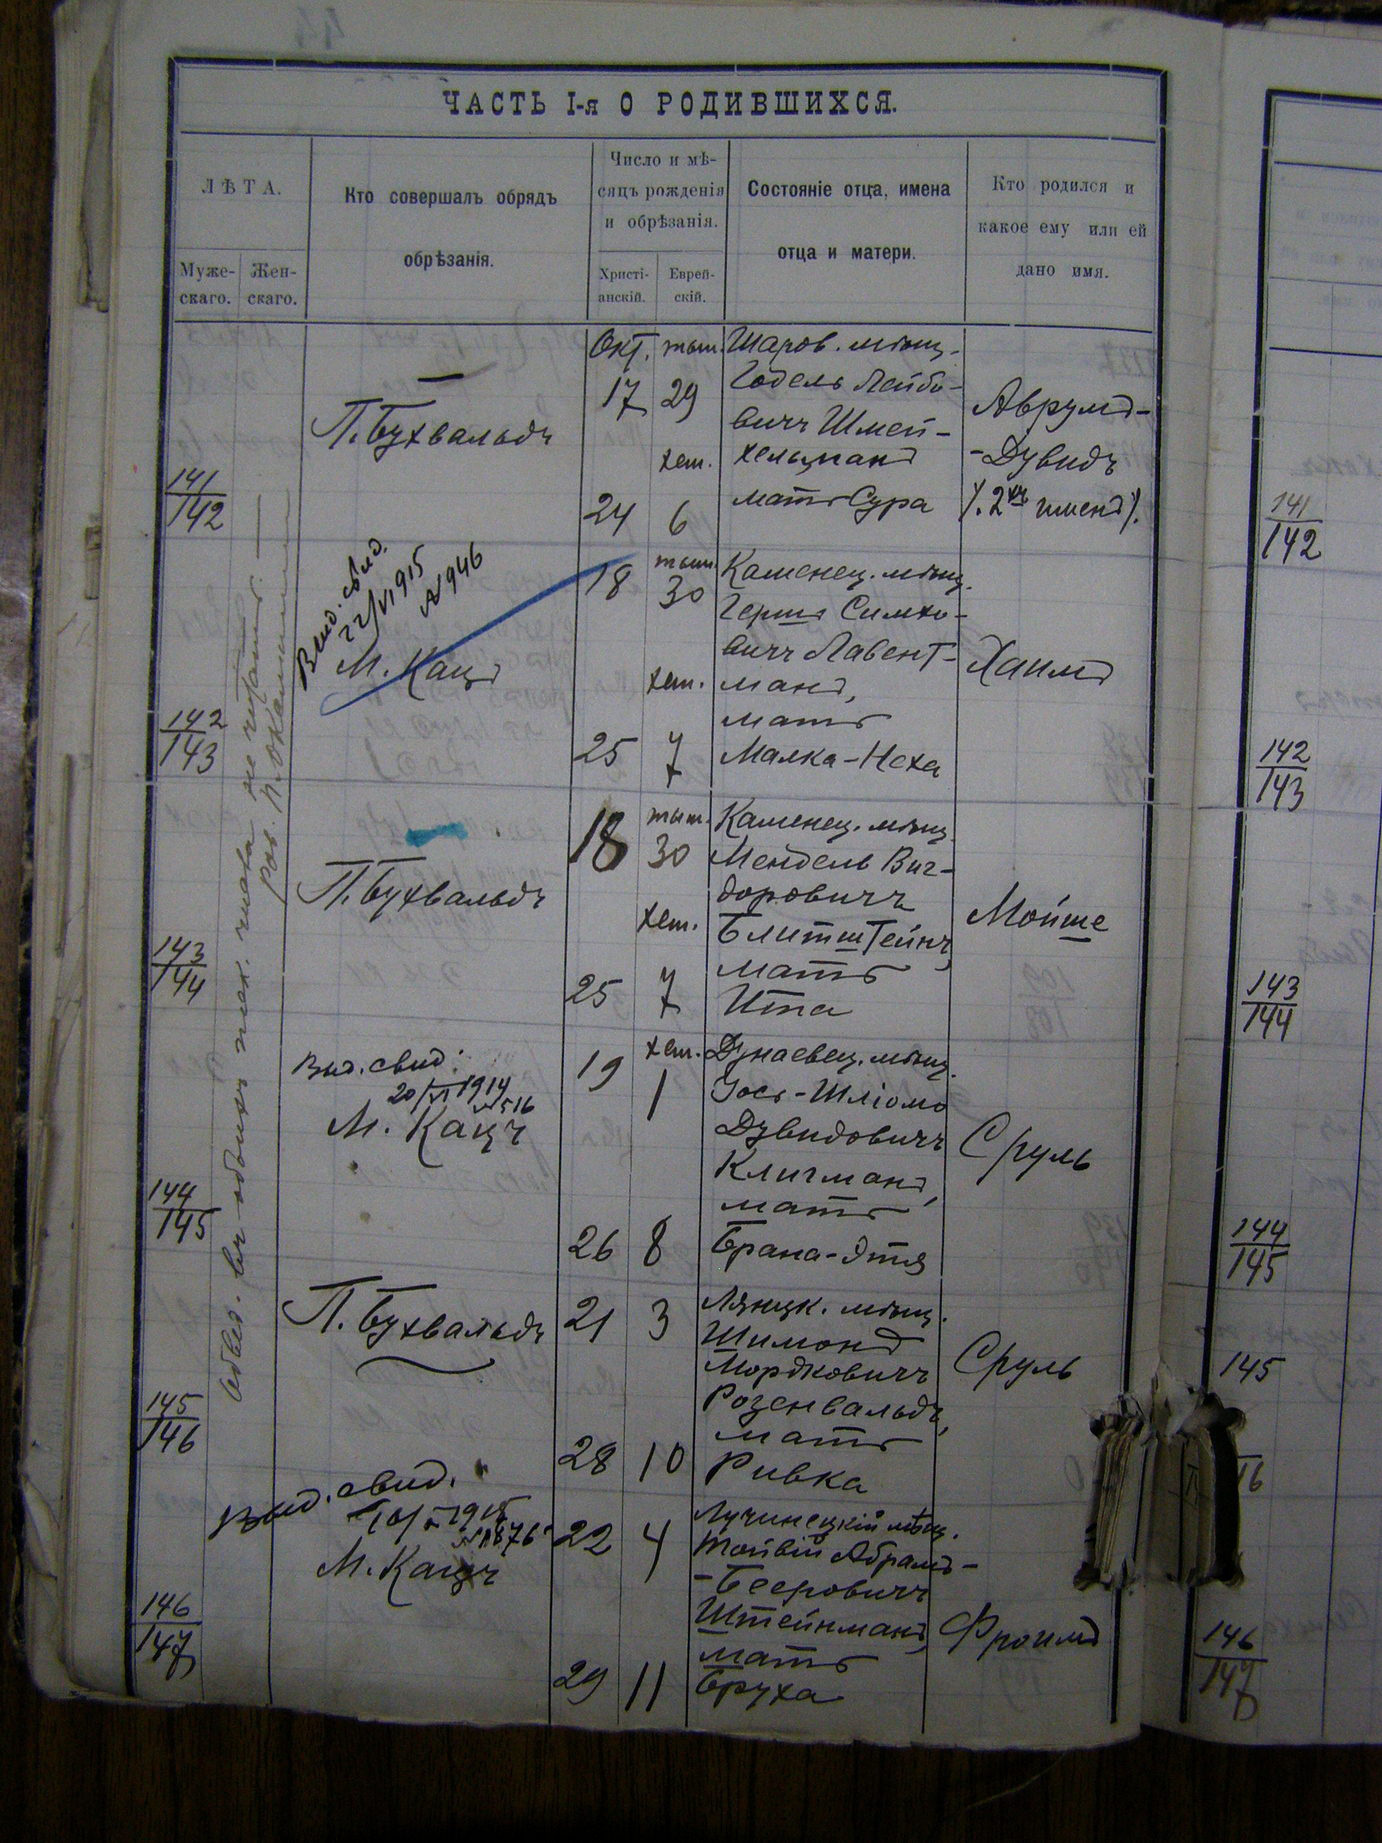 ЧАСТЬ I-я О РОДИВШИХСЯ.
ЛѢТА.
Муже-
скаго.
Жен-
скаго.
Кто совершалъ обрядъ
обрѣзанія.
Число и мѣ-
сяцъ рожденія
и обрѣзанія.
Христі-
анскій.
Еврей-
скій.
Состояніе отца, имена
отца и матери.
Кто родился и
какое ему или ей
дано имя.
141
142
П. Бухвальдъ
Окт. тыш.
17 29
хеш.
24 6
Шаров. мѣщ.
Годель Лейбо-
вичъ Шмей-
хельманъ
мать Сура
Аврумъ-
-Дувидъ
/. 2хъ именъ /.
141
142
142
143
Выд. свид.
22/VI 1915
№ 946
М. Кацъ
18 тыш. 30
хеш.
25 7
Каменец. мѣщ.
Гершъ Симхо-
вичъ Лавент-
манъ,
мать
Малка-Неха
Хаимъ
142
143
143
144
П. Бухвальдъ
18 тыш. 30
хеш.
25 7
Каменец. мѣщ.
Мендель Виг-
доровичъ
Блитштейнъ,
мать
Ита
Мойше
143
144
144
145
Выд. свид.
20/VI 1914
№ 516
М. Кацъ
19 хеш. 1
26 8
Дунаевец. мѣщ.
Іось-Шліомо
Дувидовичъ
Клигманъ,
мать
Брана-Этя
Сруль
144
145
145
146
П. Бухвальдъ
21 3
28 10
Лянцк. мѣщ.
Шимонъ
Мордковичъ
Розенвальдъ,
мать
Ривка
Сруль
145
146
147
Выд. свид.
1915
№ 1876
М. Кацъ
22 4
29 11
Лучинецкій мѣщ.
Тойвій Абрамъ-
-Бееровичъ
Штейнманъ,
мать
Бруха
Фроимъ
146
147